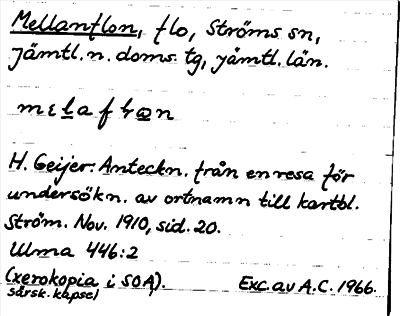 Mellanflon, flo, Ströms sn,
Jämtl. n. doms. tg, jämtl. län.
H. Geijer: Anteckn. från en resa för
undersökn. av ortnamn till kartbl.
Ström. Nov. 1910, sid. 20.
Ulma 446:2
(xerokopia i SOA). Exc. av A.C. 1966.
särsk. kapsel